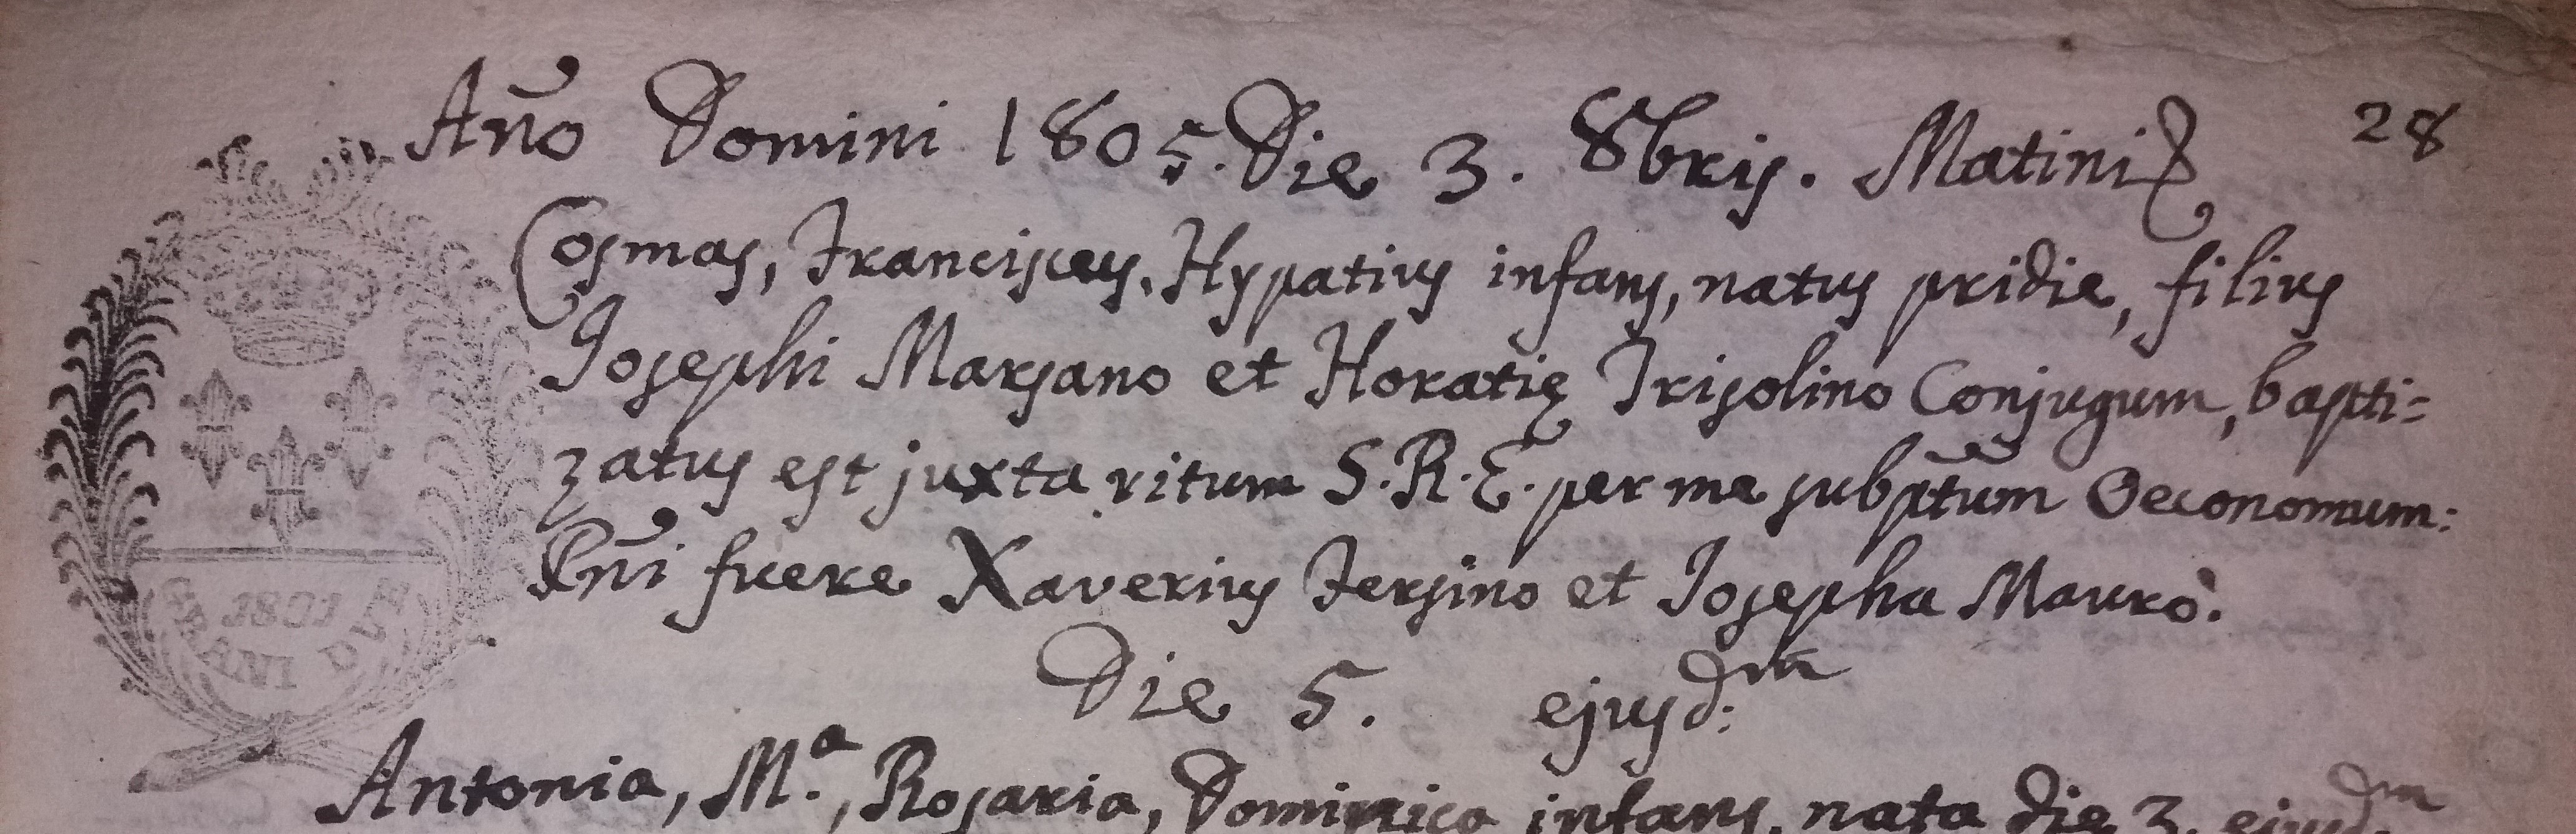 Año Domini 1805. Die 3. 8bris. Matini
28
Cosmas, Franciscus, Hypatius infans, natus pridie, filius
Josephi Marsano et Horatię Trisolino Conjugum, bapti=
zatus est juxta ritum S. R. E. per me subp̃tum Oeconomum:
Pñi fuere Xaverius Fersino et Josepha Mauro.
Die 5. ejusd:m
Antonia, M.a, Rosaria, Dominica infans, nata die 3. ejusdm
1801